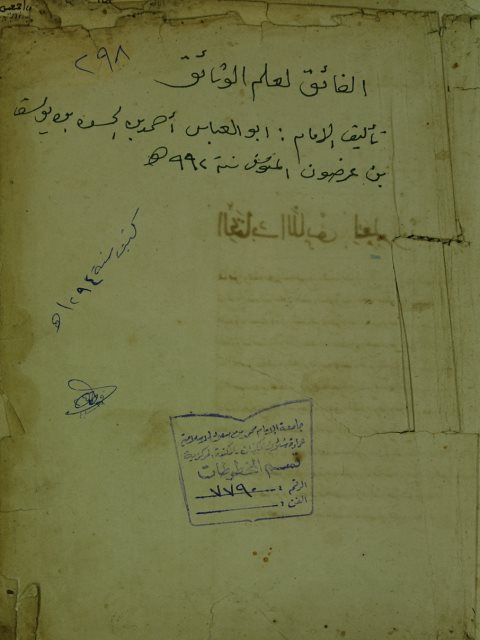 ٢٩٨
الفائق لعلم الوثائق
تأليف الإمام : ابو العباس أحمد بن الحسن بن يوسف
بن عرضون المتوفى سنة ٩٩٢ هـ
كتب سنة ١٢٩٤ هـ
جامعة الإمام محمد بن سعود الإسلامية
عمادة شئون المكتبات - المكتبة المركزية
قسم المخطوطات
الرقم : ٧٧٩٠
الفن :